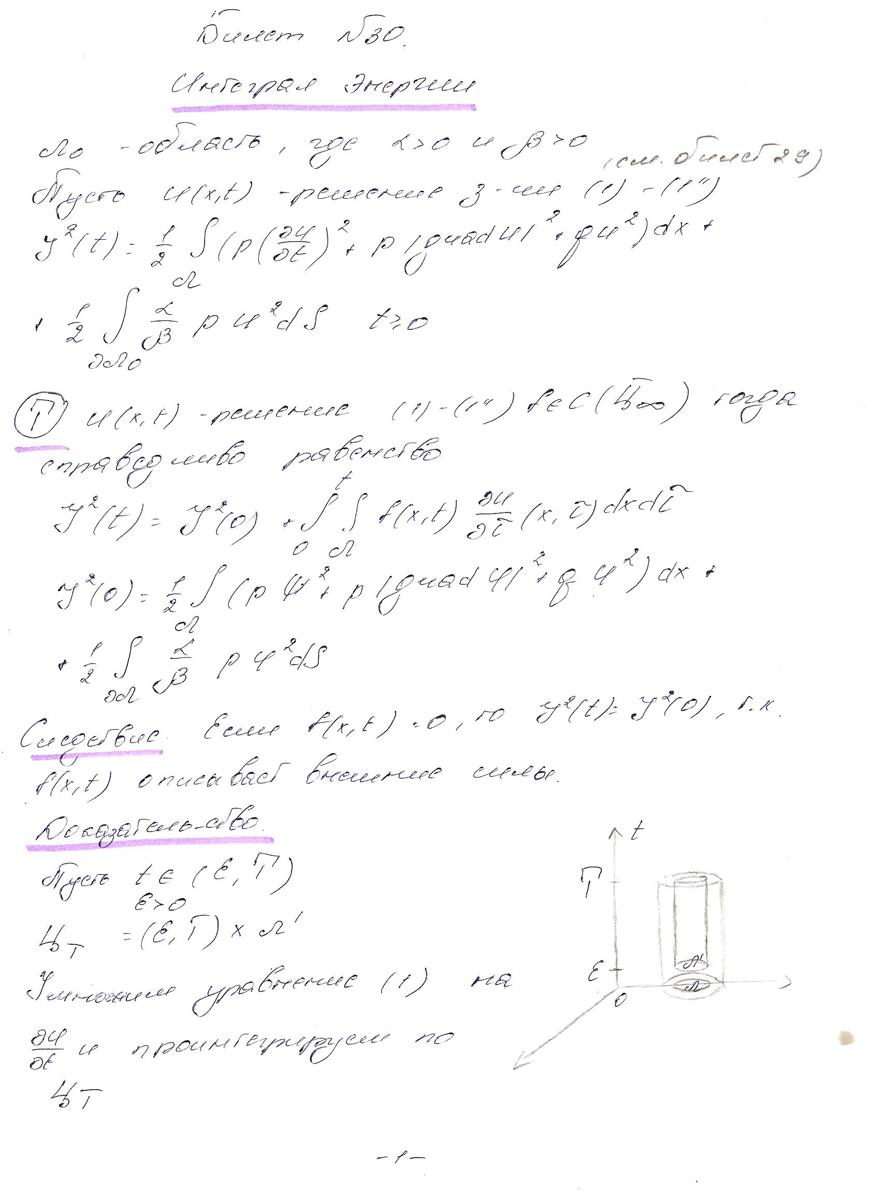 Билет №30.
Интеграл Энергии
Ω₀ - область, где α>0 и β>0 (см. билет 29)
Пусть u(x,t) - решение з-чи (1) - (1'')
J²(t) = 1/2 ∫_Ω (ρ(∂u/∂t)² + p |grad u|² + qu²) dx +
+ 1/2 ∫_∂Ω₀ α/β p u² dS t≥0
Т u(x,t) - решение (1)-(1'') f∈C(Ц∞) тогда
справедливо равенство
J²(t) = J²(0) + ∫₀ᵗ ∫_Ω f(x,t) ∂u/∂τ (x,τ) dxdτ
J²(0) = 1/2 ∫_Ω (ρ ψ² + p |grad φ|² + q φ²) dx +
+ 1/2 ∫_∂Ω α/β p φ² dS
Следствие. Если f(x,t) = 0, то J²(t) = J²(0), т.к.
f(x,t) описывает внешние силы.
Доказатель-ство.
Пусть t∈ (ε, T)
ε>0
Ц_T = (ε,T) × Ω'
Умножим уравнение (1) на
∂u/∂t и проинтегрируем по
Ц_T
t
T
ε
0
Ω'
Ω
-1-